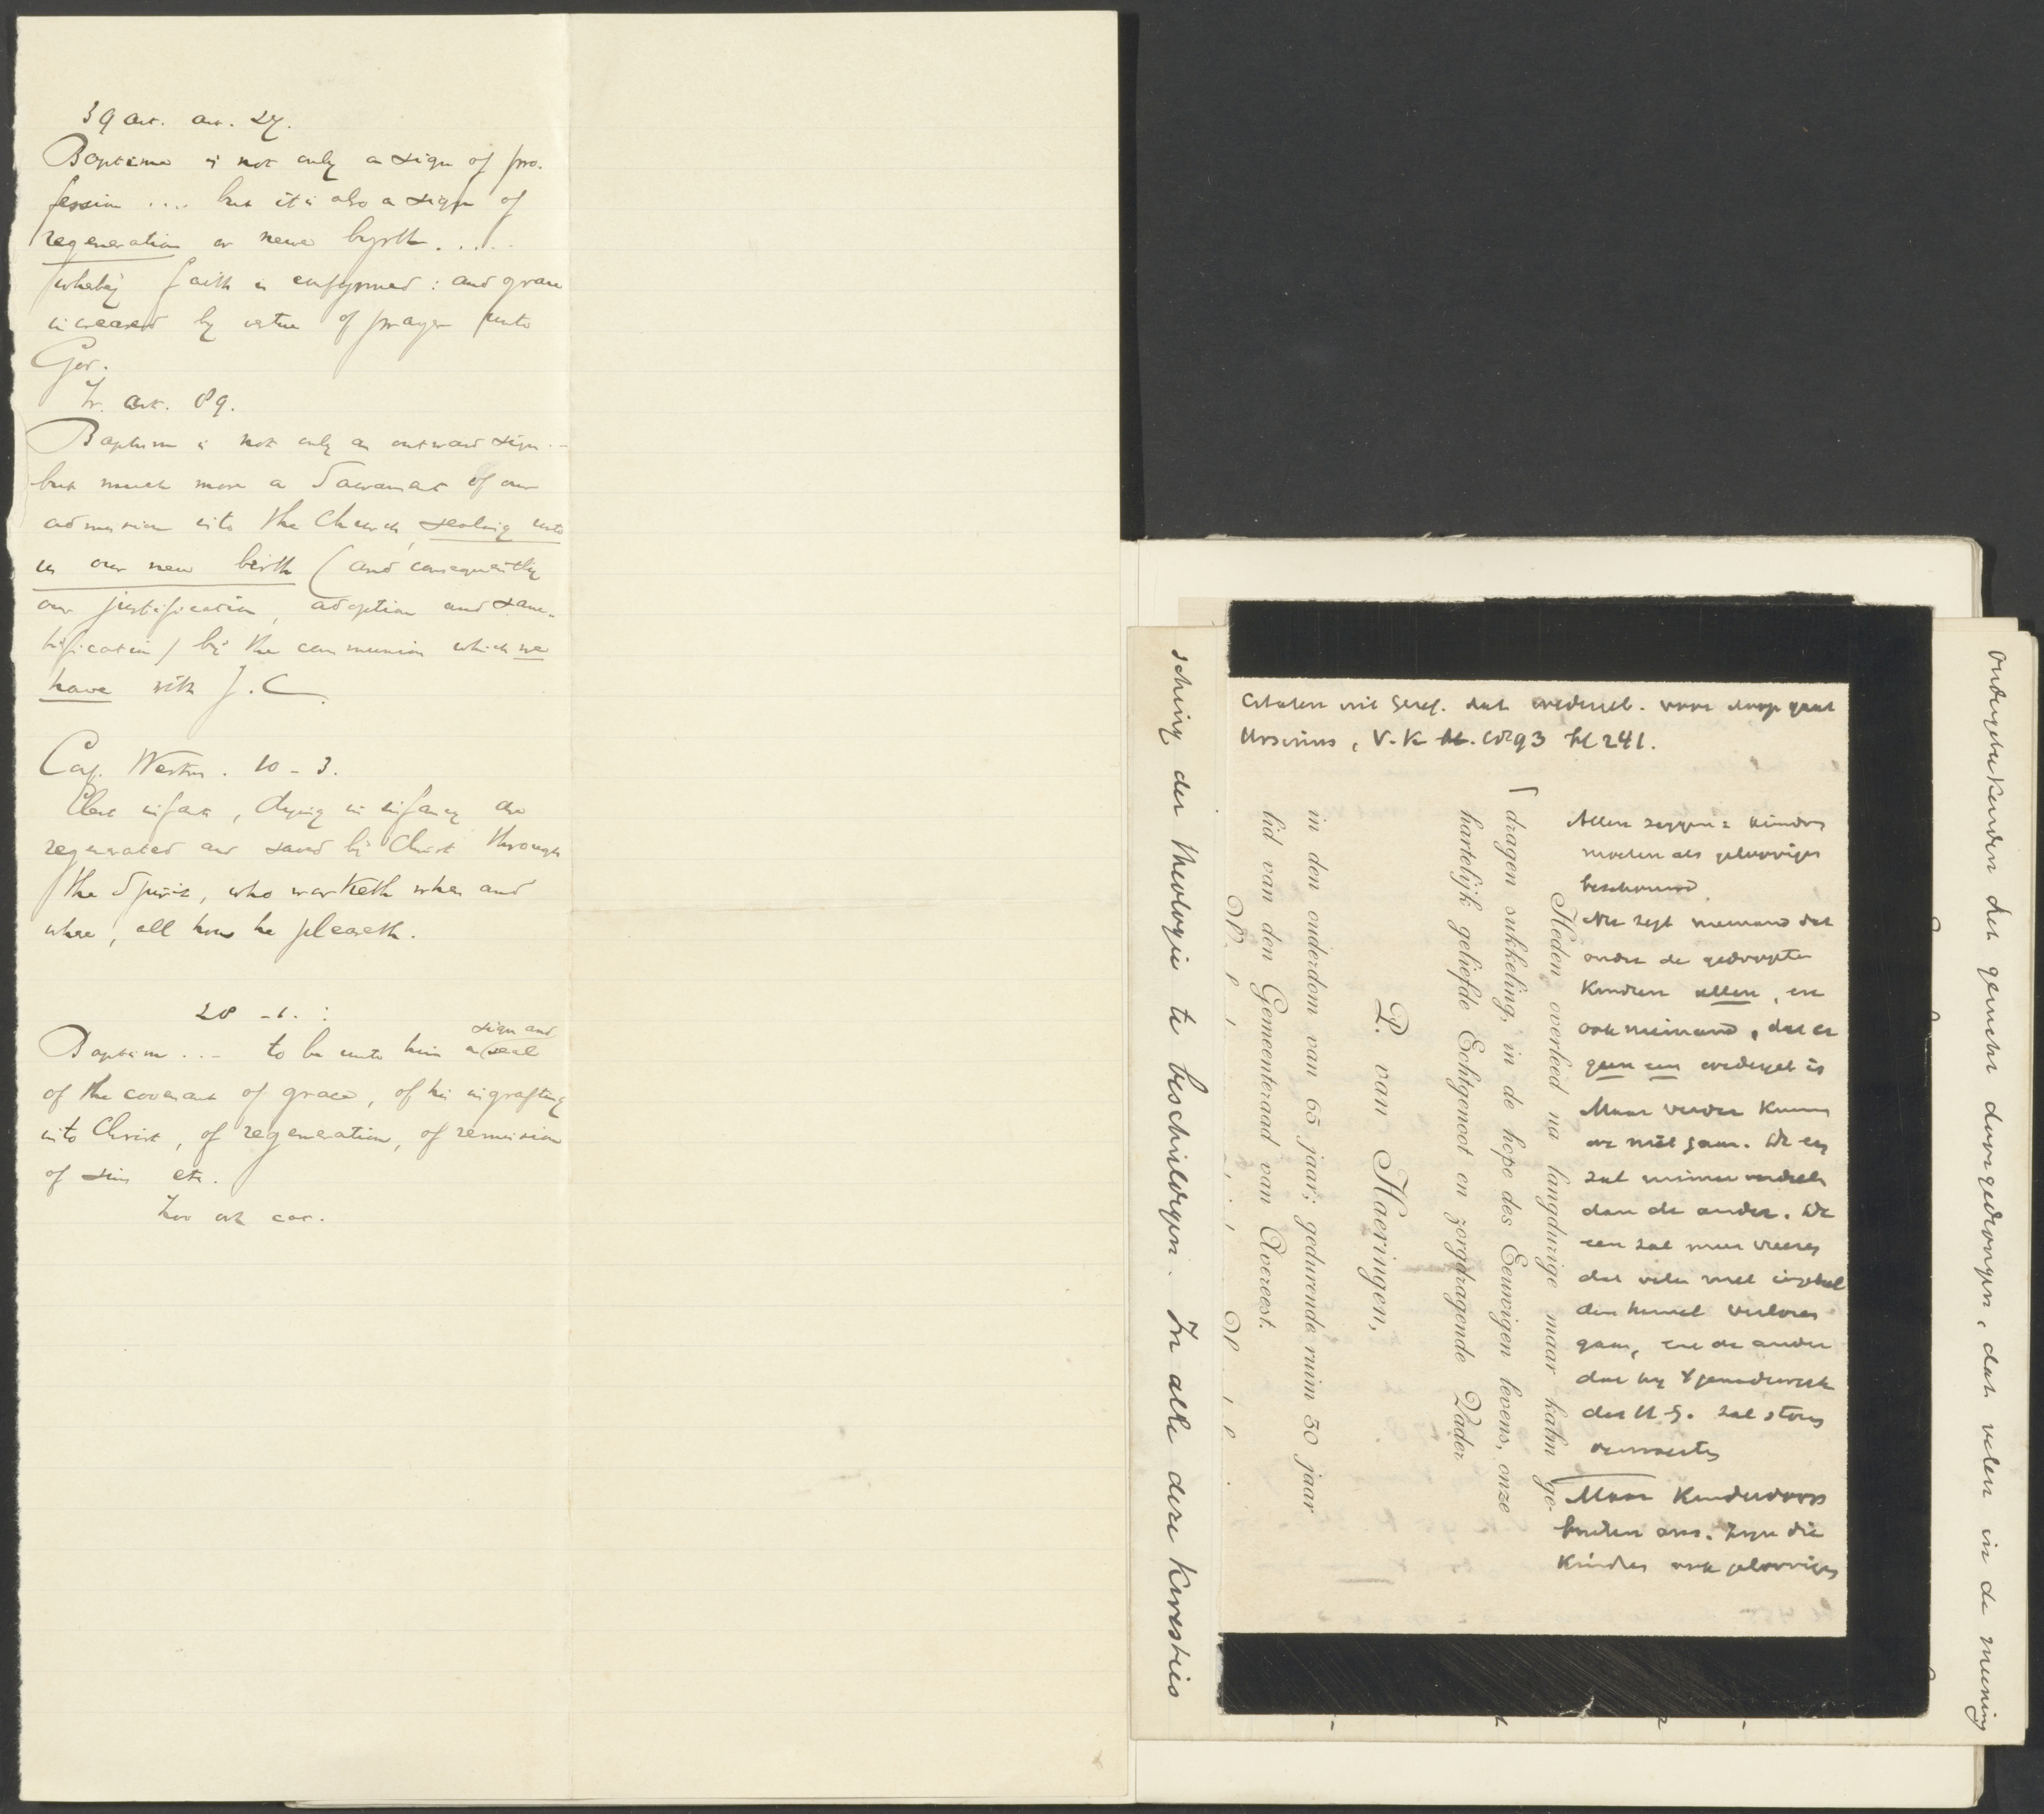 39 art. art. 27.
Baptisme is not only a sign of pro-
fession .... but it is also a sign of
regeneration or newe byrth.....
whereby faith is confyrmed : and grace
increased by vertue of prayer unto
God.
Ir. art. 89.
Baptism is not only an outward sign ..-
but much more a Sacrament of our
admission into the Church, sealing unto
us our new birth (and consequently
our justification, adoption and sanc-
tification) by the communion which we
have with J.C.
Conf. Westm. 10 - 3.
Elect infants, dying in infancy are
regenerated and saved by Christ through
the Spirit, who worketh when and
where, all how he pleaseth.
28 - 1. :
sign and
Baptism ... to be unto him a seal
of the covenant of grace, of his ingrafting
into Christ, of regeneration, of remission
of sins etc.
Zoo ook cat.
Citaten uit Geref. dat wedergeb. voor doop gaat
Ursinus, V.K. 1893 bl 241.
Allen zeggen: kinders
moeten als geloovigen
beschouwd
Nu zegt niemand dat
onder de gedoopte
kinderen allen, en
ook niemand, dat er
geen een wedergeb is
Maar verder kunnen
we niet gaan. De een
zal ruimer oordeelen
dan de ander. De
een zal meer vreezen
dat velen met ingebeelden hemel verloren
gaan, en de ander
dat hij 't genadewerk
des H.G. zal
Maar Kinderdoop
Kinders ook geloovigen
Heden overleed na langdurige maar kalm ge-
dragen sukkeling, in de hope des Eeuwigen levens, onze
hartelijk geliefde Echtgenoot en zorgdragende Vader
P. van Haeringen,
in den ouderdom van 65 jaar; gedurende ruim 30 jaar
lid van den Gemeenteraad van Avereest.
schuing der theologie te beschuldigen. In alle deze kwesties
ondergeteekenden het gerucht doorgedrongen, dat velen in de meening